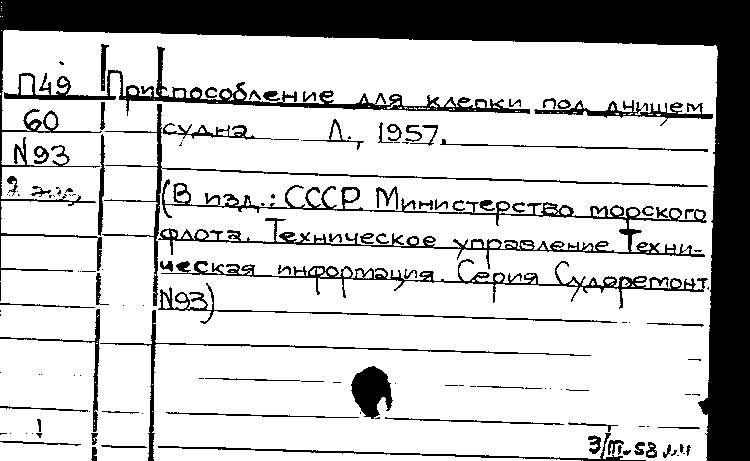 П49 Приспособление для клепки под днищем
60 судна. Л., 1957.
N93
2 экз. (В изд.: СССР. Министерство морского
флота. Техническое управление. Техни-
ческая информация. Серия Судоремонт
N93)
3/III-58